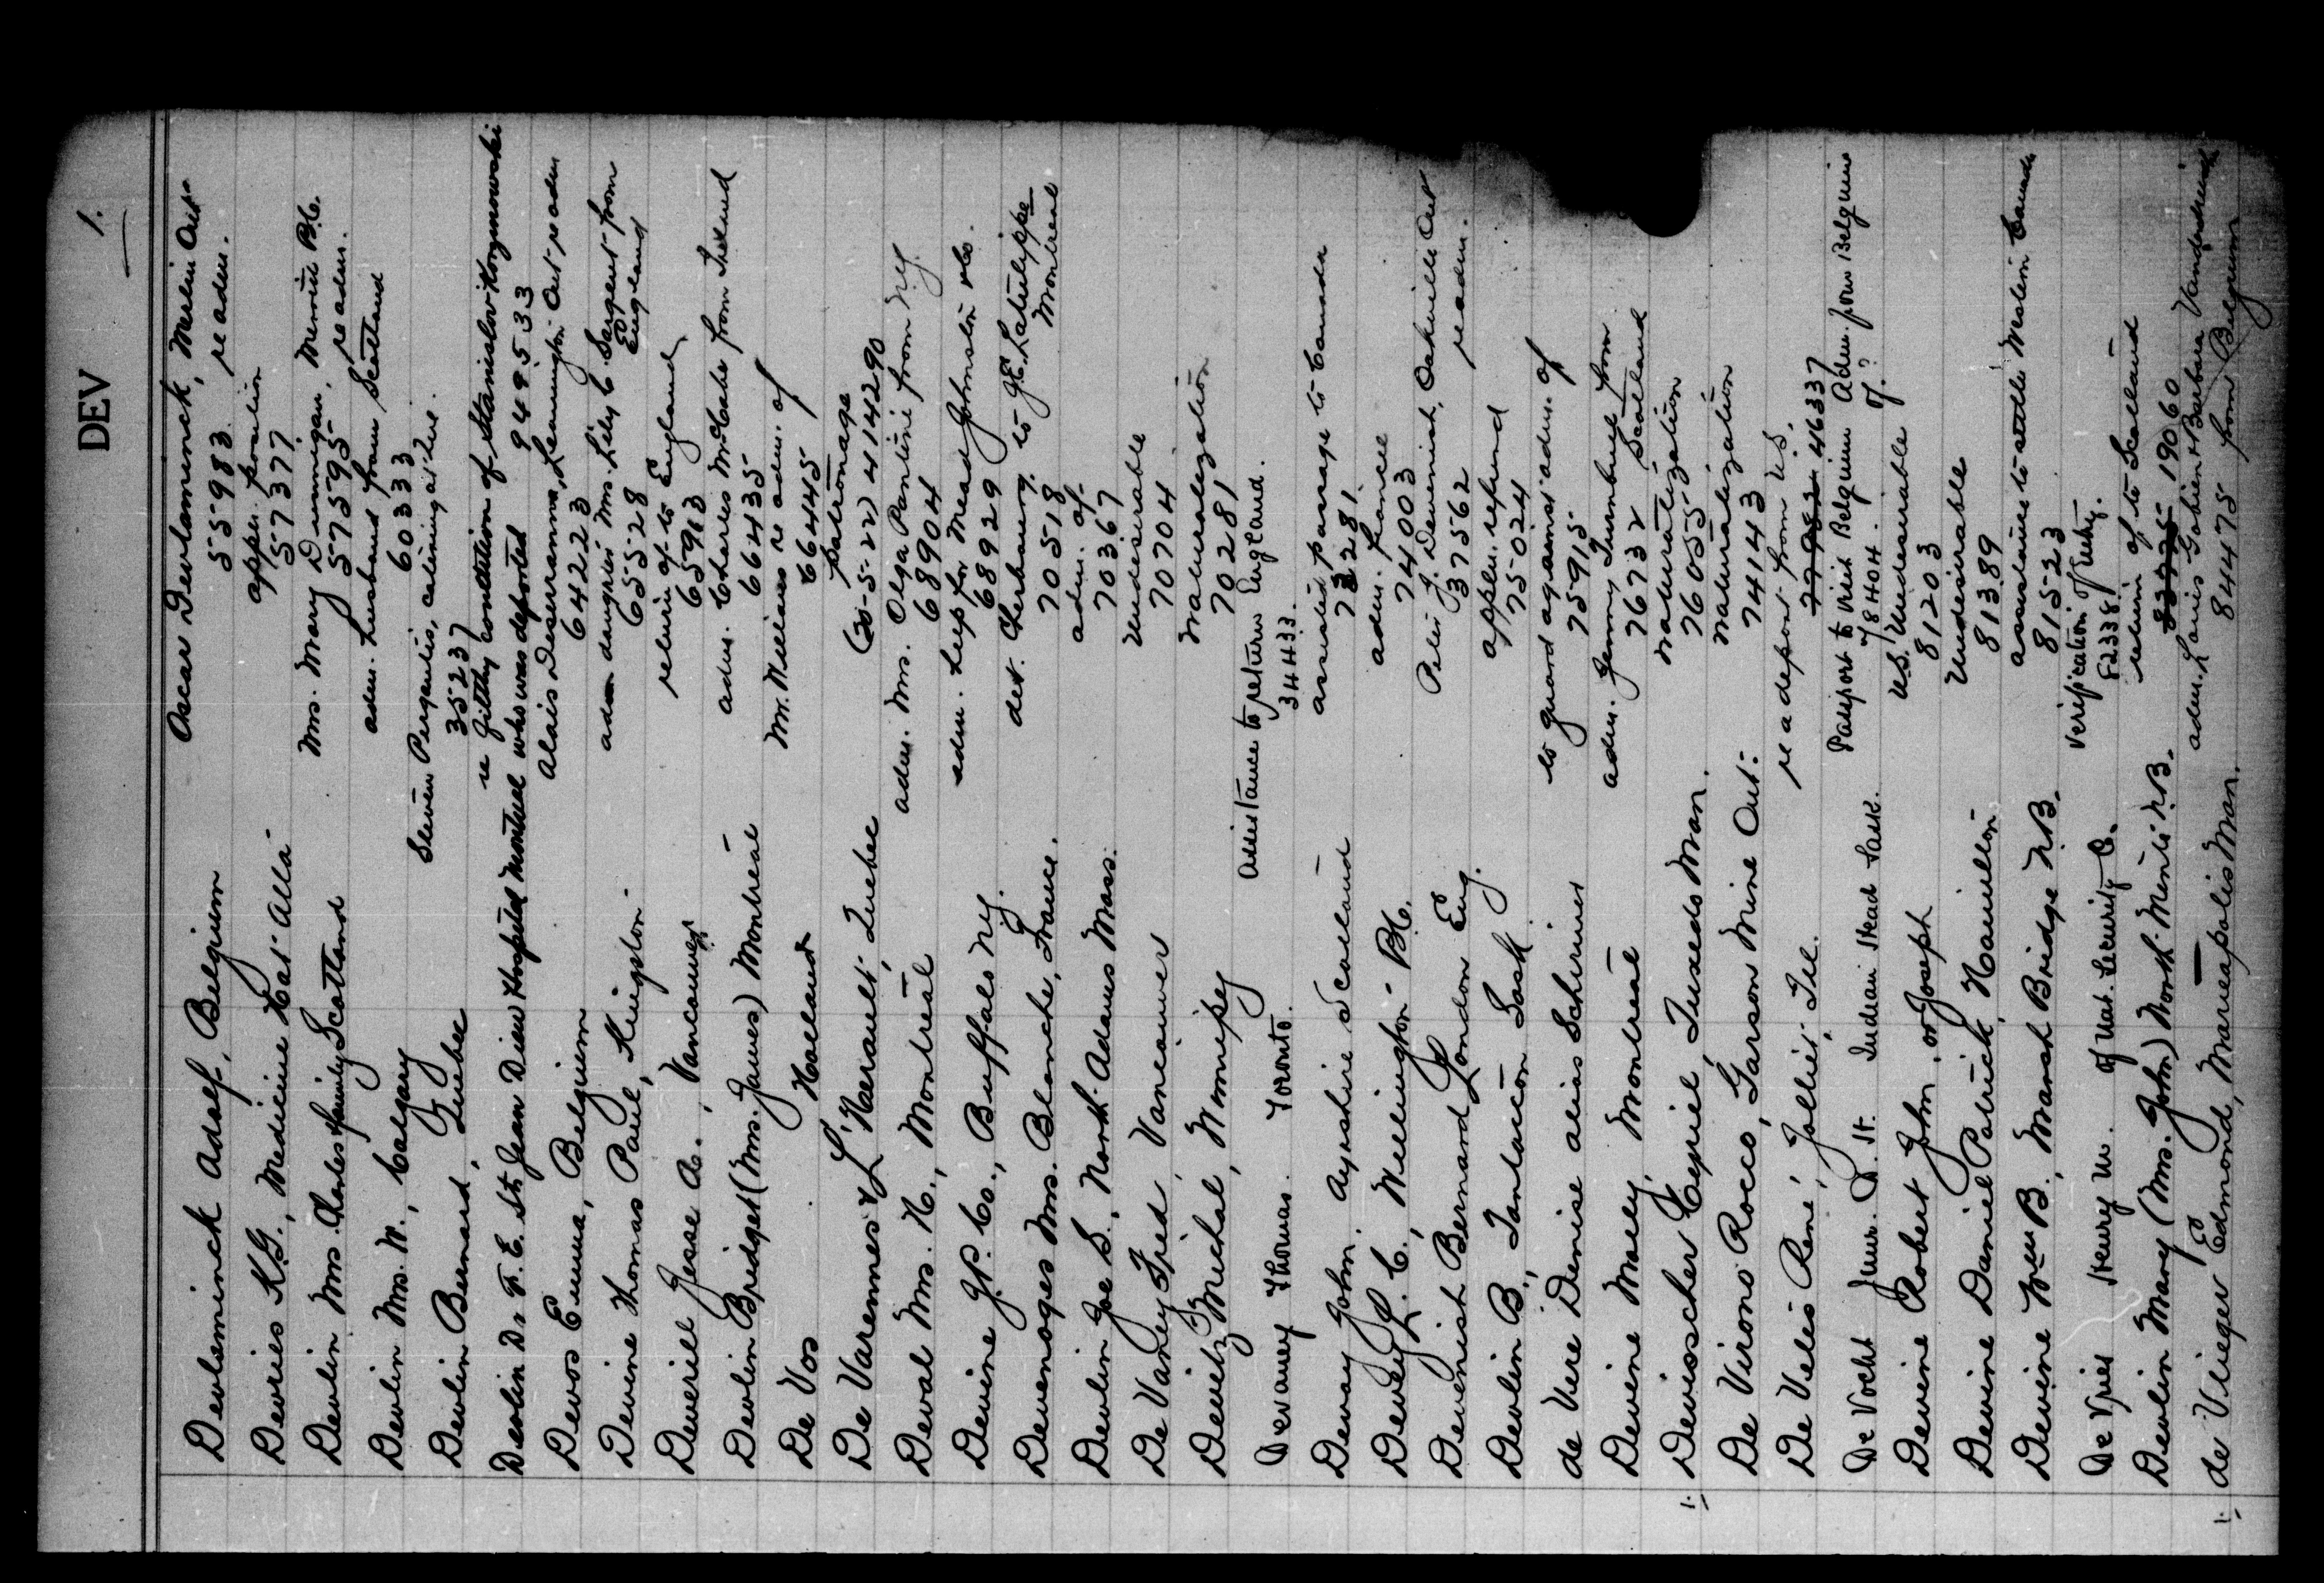 DEV 1.
Devlaminck Adolf, Belgium Oscar Devlaminck, Merlin Ont
55983 re adm.
Devries K.G., Medicine Hat Alta appln. position
57377
Devlin Mrs. Charles & family Scotland Mrs. Mary Dunnigan, Merritt B.C.
57595 re adm.
Devlin Mrs. W., Calgary adm. husband from Scotland
60333
Devlin Bernard, Quebec Steven Pergantis,
35237
Devlin Dr F. E. St. Jean Dieu Hospital Montreal re filthy condition of Stanislov
who was deported 949533
Devos Emma, Belgium Alois Deserranno, Leamington Ont re adm
64223
Devine Thomas Paul, Kingston adm daughter Mrs. Lily C. Sargent from
65528 England
Deverill Jesse A., Vancouver return of to England
65963
Devlin Bridget (Mrs. James) Montreal adm. Charles McCabe from Ireland
66435
De Vos Holland Mr. Williams re adm. of
66445
De Varennes & L'Herault, Quebec patronage
(30-5-22) 4114290
Deval Mrs. H., Montreal adm. Mrs. Olga Pantini from N.Y.
68904
Devine J.P. Co., Buffalo N.Y. adm. help for Mead Johnston Co.
68929
Devenoges Mrs. Blanche, France. det. Cherbourg to J.E. Latulippe
70518 Montreal
Devlin Joe S., North Adams Mass. adm. of
70367
De Vaney Fred, Vancouver Undesirable
70704
Devitz Michal, Winnipeg Naturalization
70281
Devaney Thomas. Toronto. Assistance to return England.
34433.
Devay John, Ayrshire Scotland assisted passage to Canada
73281
Devey L. C., Wellington B.C. adm. fiancee
74003
Devenish Bernard London Eng. Peter J. Devenish, Oakville Ont
37562 re adm.
Devlin B., Tantallon Sask appln. refund
75024
de Vere Denise alias Schriner to guard against adm. of
75915
Devine Mary, Montreal adm. Jenny Turnbull from
76732 Scotland
1. Devisscher Cyriel, Tuxedo Man. Naturalization
76055
De Virono Rocco, Garson Mine Ont. Naturalization
74143
De Velis René, Jolliet, Ill. re a deport from U.S.
46337
De Vocht Jules. P. St. Indian Head Sask. Passport to visit Belgium Adm. from Belgium
78404. of?
Devine Robert John, or Joseph U.S. Undesirable
81203
Devine Daniel Patrick, Hamilton Undesirable
81389
Devine Wm B., Marsh Bridge N.B. assistance to settle Western Canada
81523
De Vries Henry W. of Nat. Security C. Verification of Entry.
82338
Devlin Mary (Mrs. John) North Minto N.B. return of to Scotland
19060
1. de Vlieger Edmond, Mareapolis Man. adm. Louis Gobien & Barbara
84475 from Belgium